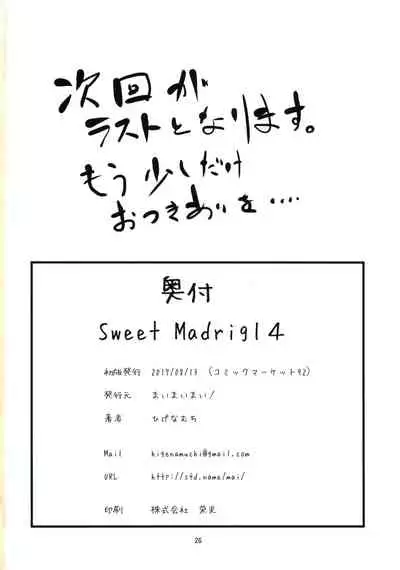 次回が
ラストとなります。
もう少しだけ
おつきあいを・・・・
奥付
Sweet Madrigl 4
初版発行 2017/08/13 (コミックマーケット92)
発行元 まいまいまい!
著者 ひげなむち
Mail higenamuchi@gmail.com
URL http://std.name/mai/
印刷 株式会社 栄光
26